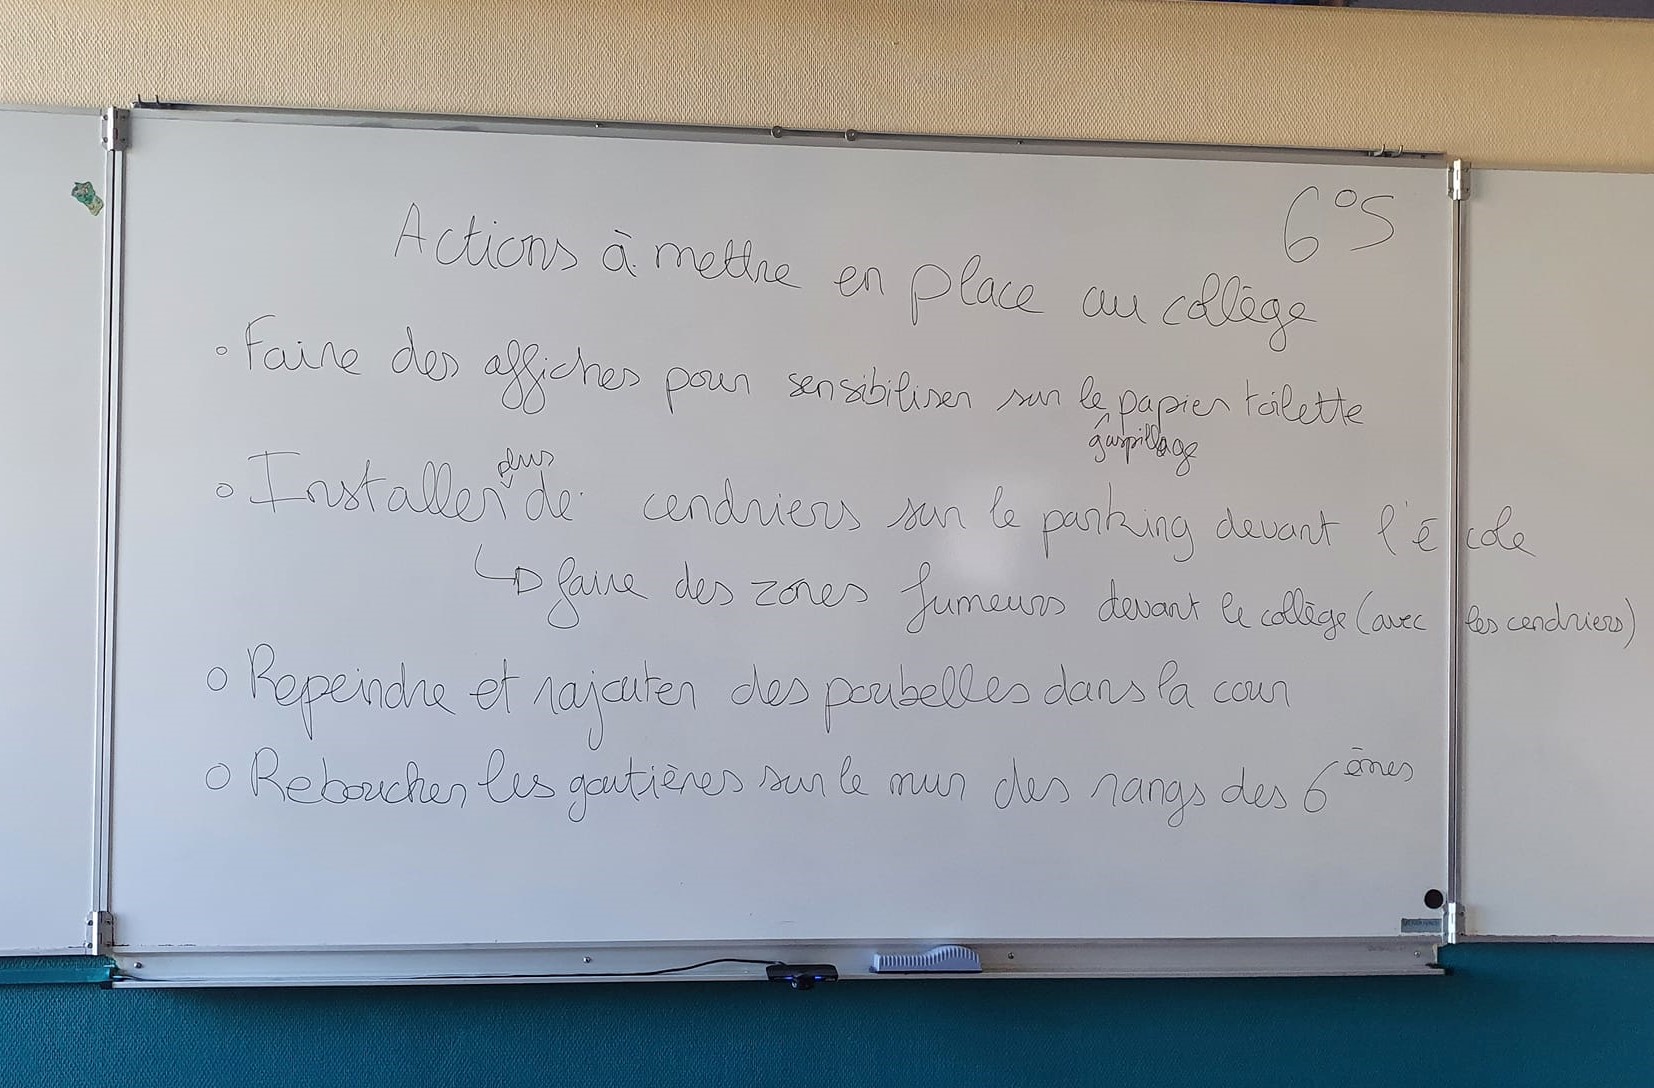 6°S
Actions à mettre en place au collège
◦ Faire des affiches pour sensibiliser sur le papier toilette
gaspillage
plus
◦ Installer de cendriers sur le parking devant l'école
↳ faire des zones fumeurs devant le collège (avec les cendriers)
◦ Repeindre et rajouter des poubelles dans la cour
◦ Reboucher les goutières sur le mur des rangs des 6èmes